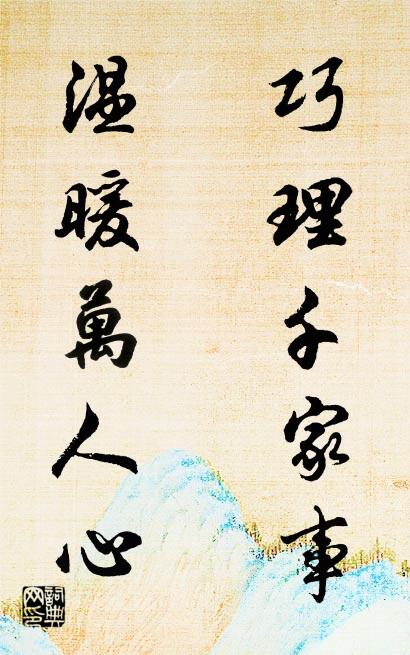 巧理千家事
温暖萬人心
詞典
网